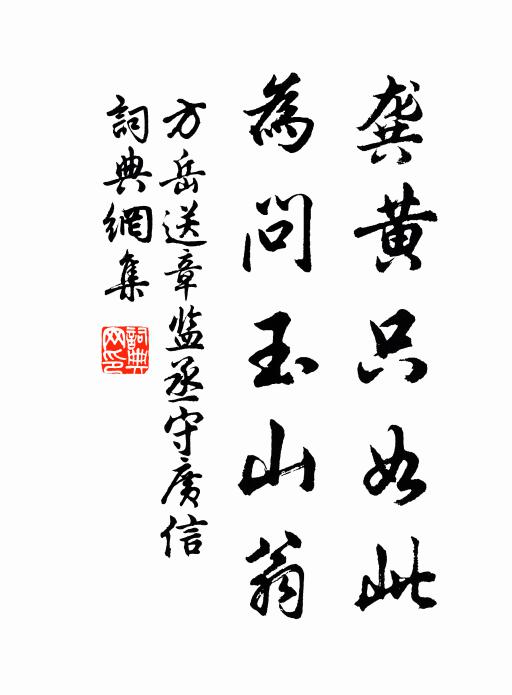 龚黄只如此
為问玉山翁
方岳送章监丞守廣信
詞典網集
詞典网印